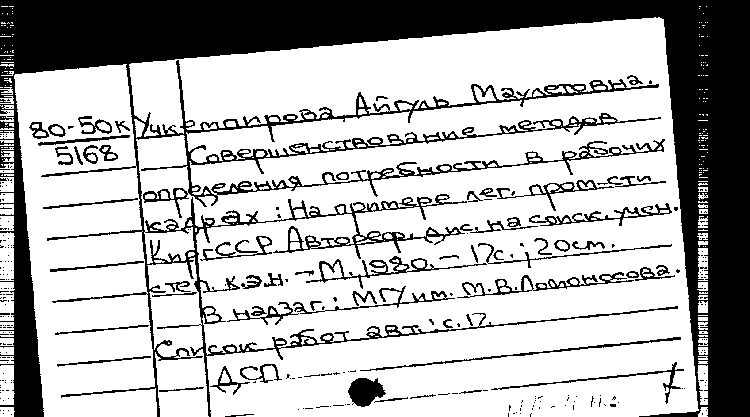 80-50к
5168
Учкемпирова, Айгуль Маулетовна.
Совершенствование методов
определения потребности в рабочих
кадрах : На примере лег. пром-сти
КиргССР. Автореф. дис. на соиск. учен.
степ. к.э.н. - М., 1980. - 17с. ; 20см.
В надзаг. : МГУ им. М.В.Ломоносова.
Список работ авт. : с.17.
ДСП.